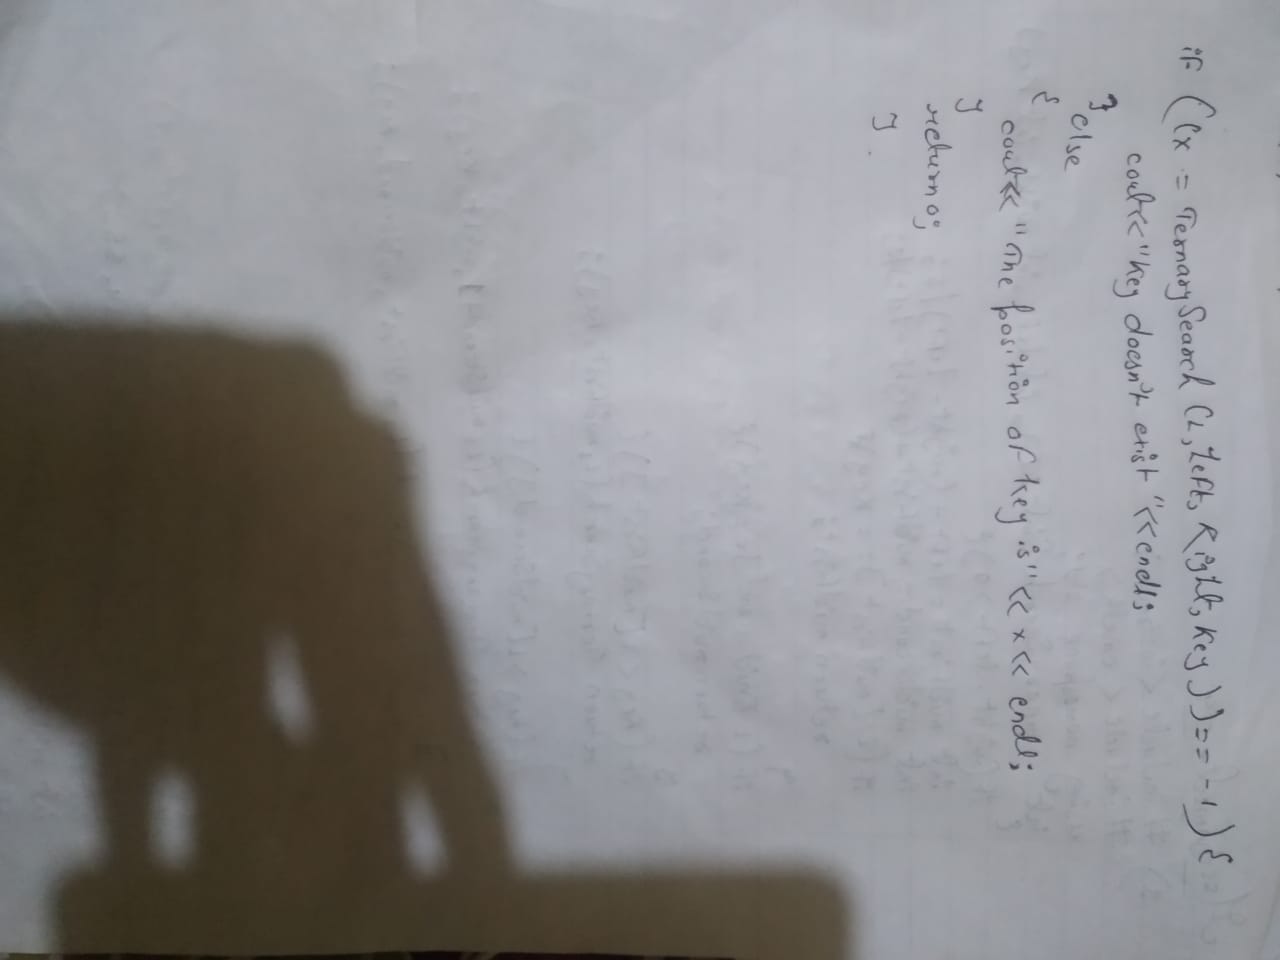 if ((x = TernarySearch (L, Left, Right, key)) == -1) {
cout<<"key doesn't exist "<<endl;
} else
{
cout<< "The position of key is" << x << endl;
}
return 0;
}